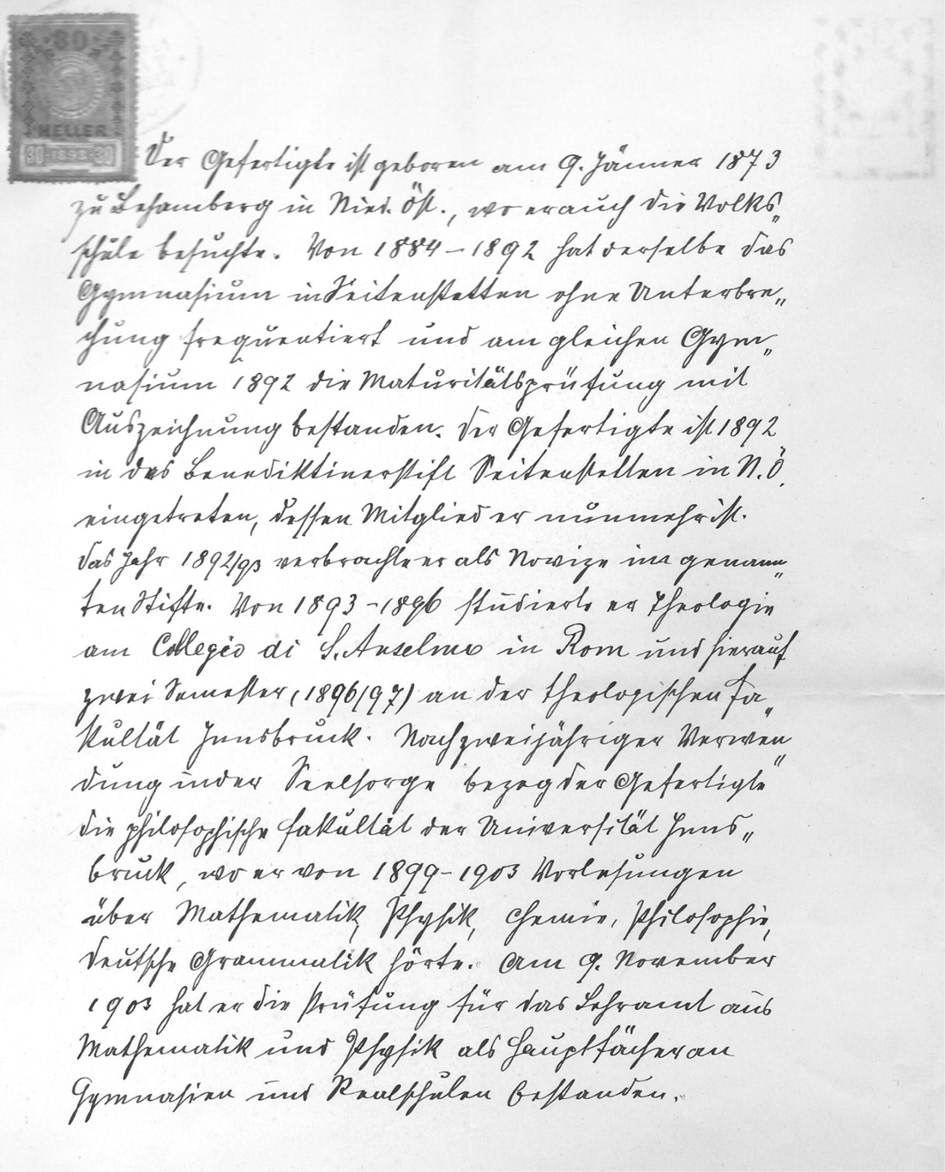 80
HELLER
30 1898 30
Der Gefertigte ist geboren am 9. Jänner 1873
zu Behamberg in Nied. Öst., wo er auch die Volks„
schule besuchte. Von 1884 – 1892 hat derselbe das
Gymnasium in Seitenstetten ohne Unterbre„
chung frequentiert und am gleichen Gym„
nasium 1892 die Maturitätsprüfung mit
Auszeichnung bestanden. Der Gefertigte ist 1892
in das Benediktinerstift Seitenstetten in N.Ö.
eingetreten, dessen Mitglied er nunmehr ist.
Das Jahr 1892/93 verbrachte er als Novize im genann„
ten Stifte. Von 1893 – 1896 studierte er Theologie
am Collegio di S. Anselmo in Rom und hierauf
zwei Semester (1896/97) an der theologischen Fa„
kultät Innsbruck. Nach zweijähriger Verwen„
dung in der Seelsorge bezog der Gefertigte
die philosophische Fakultät der Universität Inns„
bruck, wo er von 1899 – 1903 Vorlesungen
über Mathematik, Physik, Chemie, Philosophie,
deutsche Grammatik hörte. Am 9. November
1903 hat er die Prüfung für das Lehramt aus
Mathematik und Physik als Hauptfächer an
Gymnasien und Realschulen bestanden.